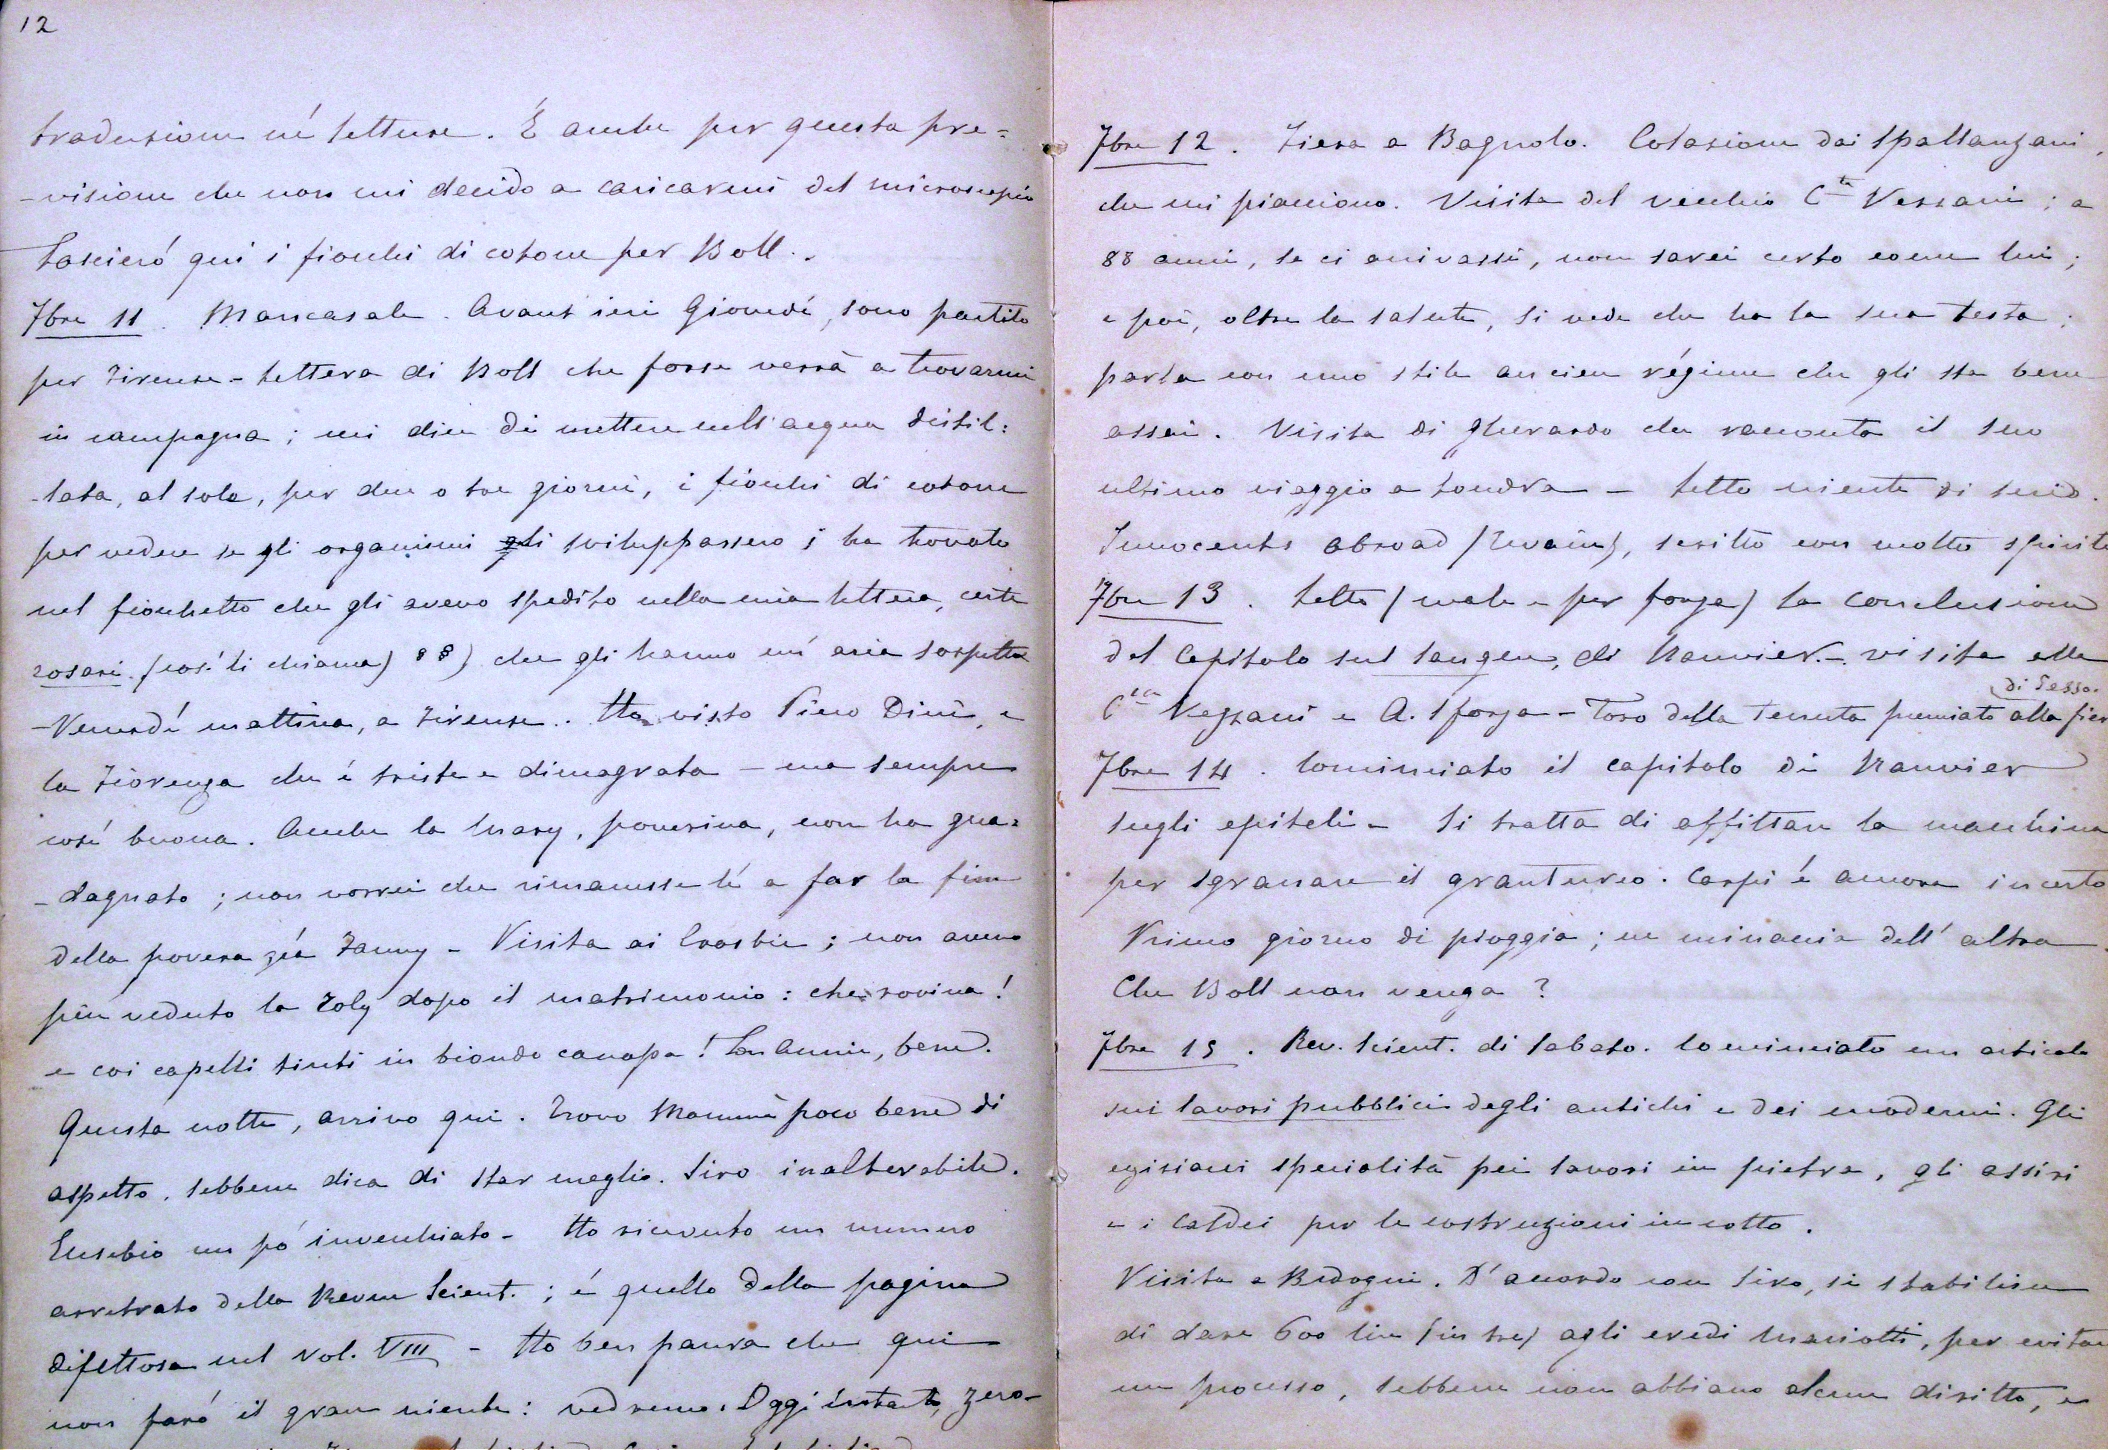 12
traduzioni né letture. É anche per questa pre=
-visione che non mi decido a caricarmi del microscopio
Lascieró qui i fiocchi di cotone per Boll..
7bre 11. Mancasale. Avant'ieri Giovedí, sono partito
per Firenze - Lettera di Boll che forse verrà a trovarmi
in campagna; mi dice di mettere nell'acqua distil:
-lata, al sole, per due o tre giorni, i fiocchi di cotone
per vedere se gli organismi gli sviluppassero; ha trovato
nel fiocchetto che gli avevo spedito nella mia lettera, certi
rosari (cosí li chiama) 8 8) che gli hanno un'aria sospetta
-Venerdí mattina, a Firenze. Ho visto Piero Dini, e
la Fiorenza che é triste e dimagrata - ma sempre
cosí buona. Anche la Mary, poverina, non ha gua=
-dagnato; non vorrei che rimanesse lí a far la fine
della povera zia Fanny - Visita ai Crosbie; non avevo
piu veduto la Poly dopo il matrimonio: che rovina!
e coi capelli tinti in biondo canapa! Lou Annie, bene.
Questa notte, arrivo qui. Trovo Mammà poco bene di
aspetto, sebbene dica di star meglio. Siro inalterabile.
Eusebio un pó invecchiato - Ho ricevuto un numero
arretrato della Revue Scient.; é quello della pagina
difettosa nel vol. VIII - Ho ben paura che qui
non faró il gran niente: vedremo. Oggi intanto, zero-
7bre 12. Fiera a Bagnolo. Colazione dai Spallanzani,
che mi piacciono. Visita del vecchio Cte Vezzani; a
88 anni, se ci arrivassi, non sarei certo come lui;
e poi, oltre la salute, si vede che ha la sua testa;
parla con uno stile ancien régime che gli sta bene
assai. Visita di Gherardo che racconta il suo
ultimo viaggio a Londra - Letto niente di serio.
Innocents abroad (Twain), scritto con molto spirito
7bre 13. Letto (male e per forza) la conclusione
del Capitolo sul sangue, di Ranvier - visita alla
di Sesso.
Cssa Vezzani e A. Sforza - Toro della Tenuta premiato alla fiera
7bre 14. Cominciato il capitolo di Ranvier
sugli epiteli - Si tratta di affittare la macchina
per sgranare il granturco. Carpi é ancora incerto
Primo giorno di pioggia; ne minaccia dell'altra.
Che Boll non venga?
7bre 15. Rev. Scient. di Sabato. Cominciato un articolo
sui lavori pubblici degli antichi e dei moderni. Gli
egiziani specialità pei lavori in pietra, gli assiri
e i Caldei per le costruzioni in cotto.
Visita a Bedogni. D'accordo con Siro, si stabilisce
di dare 600 lire (in tre) agli eredi Mariotti, per evitare
un processo, sebbene non abbiano alcun diritto, e